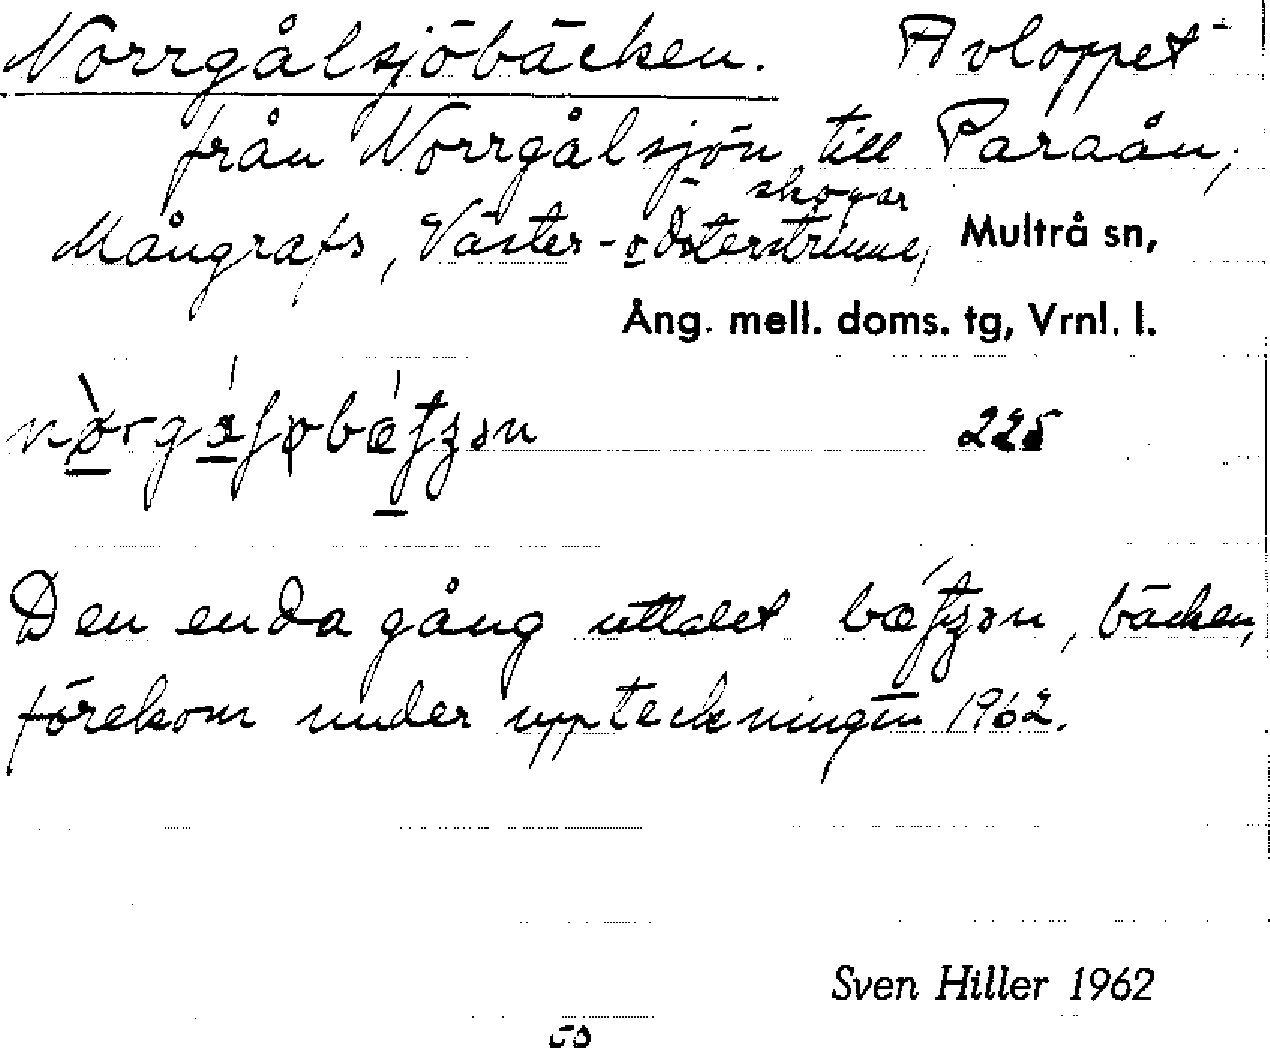 Norrgålsjöbäcken. Avloppet
från Norrgålsjön till Paraån,
skogar
Mångrafs, Väster- o Österstrinne, Multrå sn,
Ång. mell. doms. tg, Vrnl. l.
225
Den enda gång uttalet , bäcken,
förekom under uppteckningen 1962.
Sven Hiller 1962